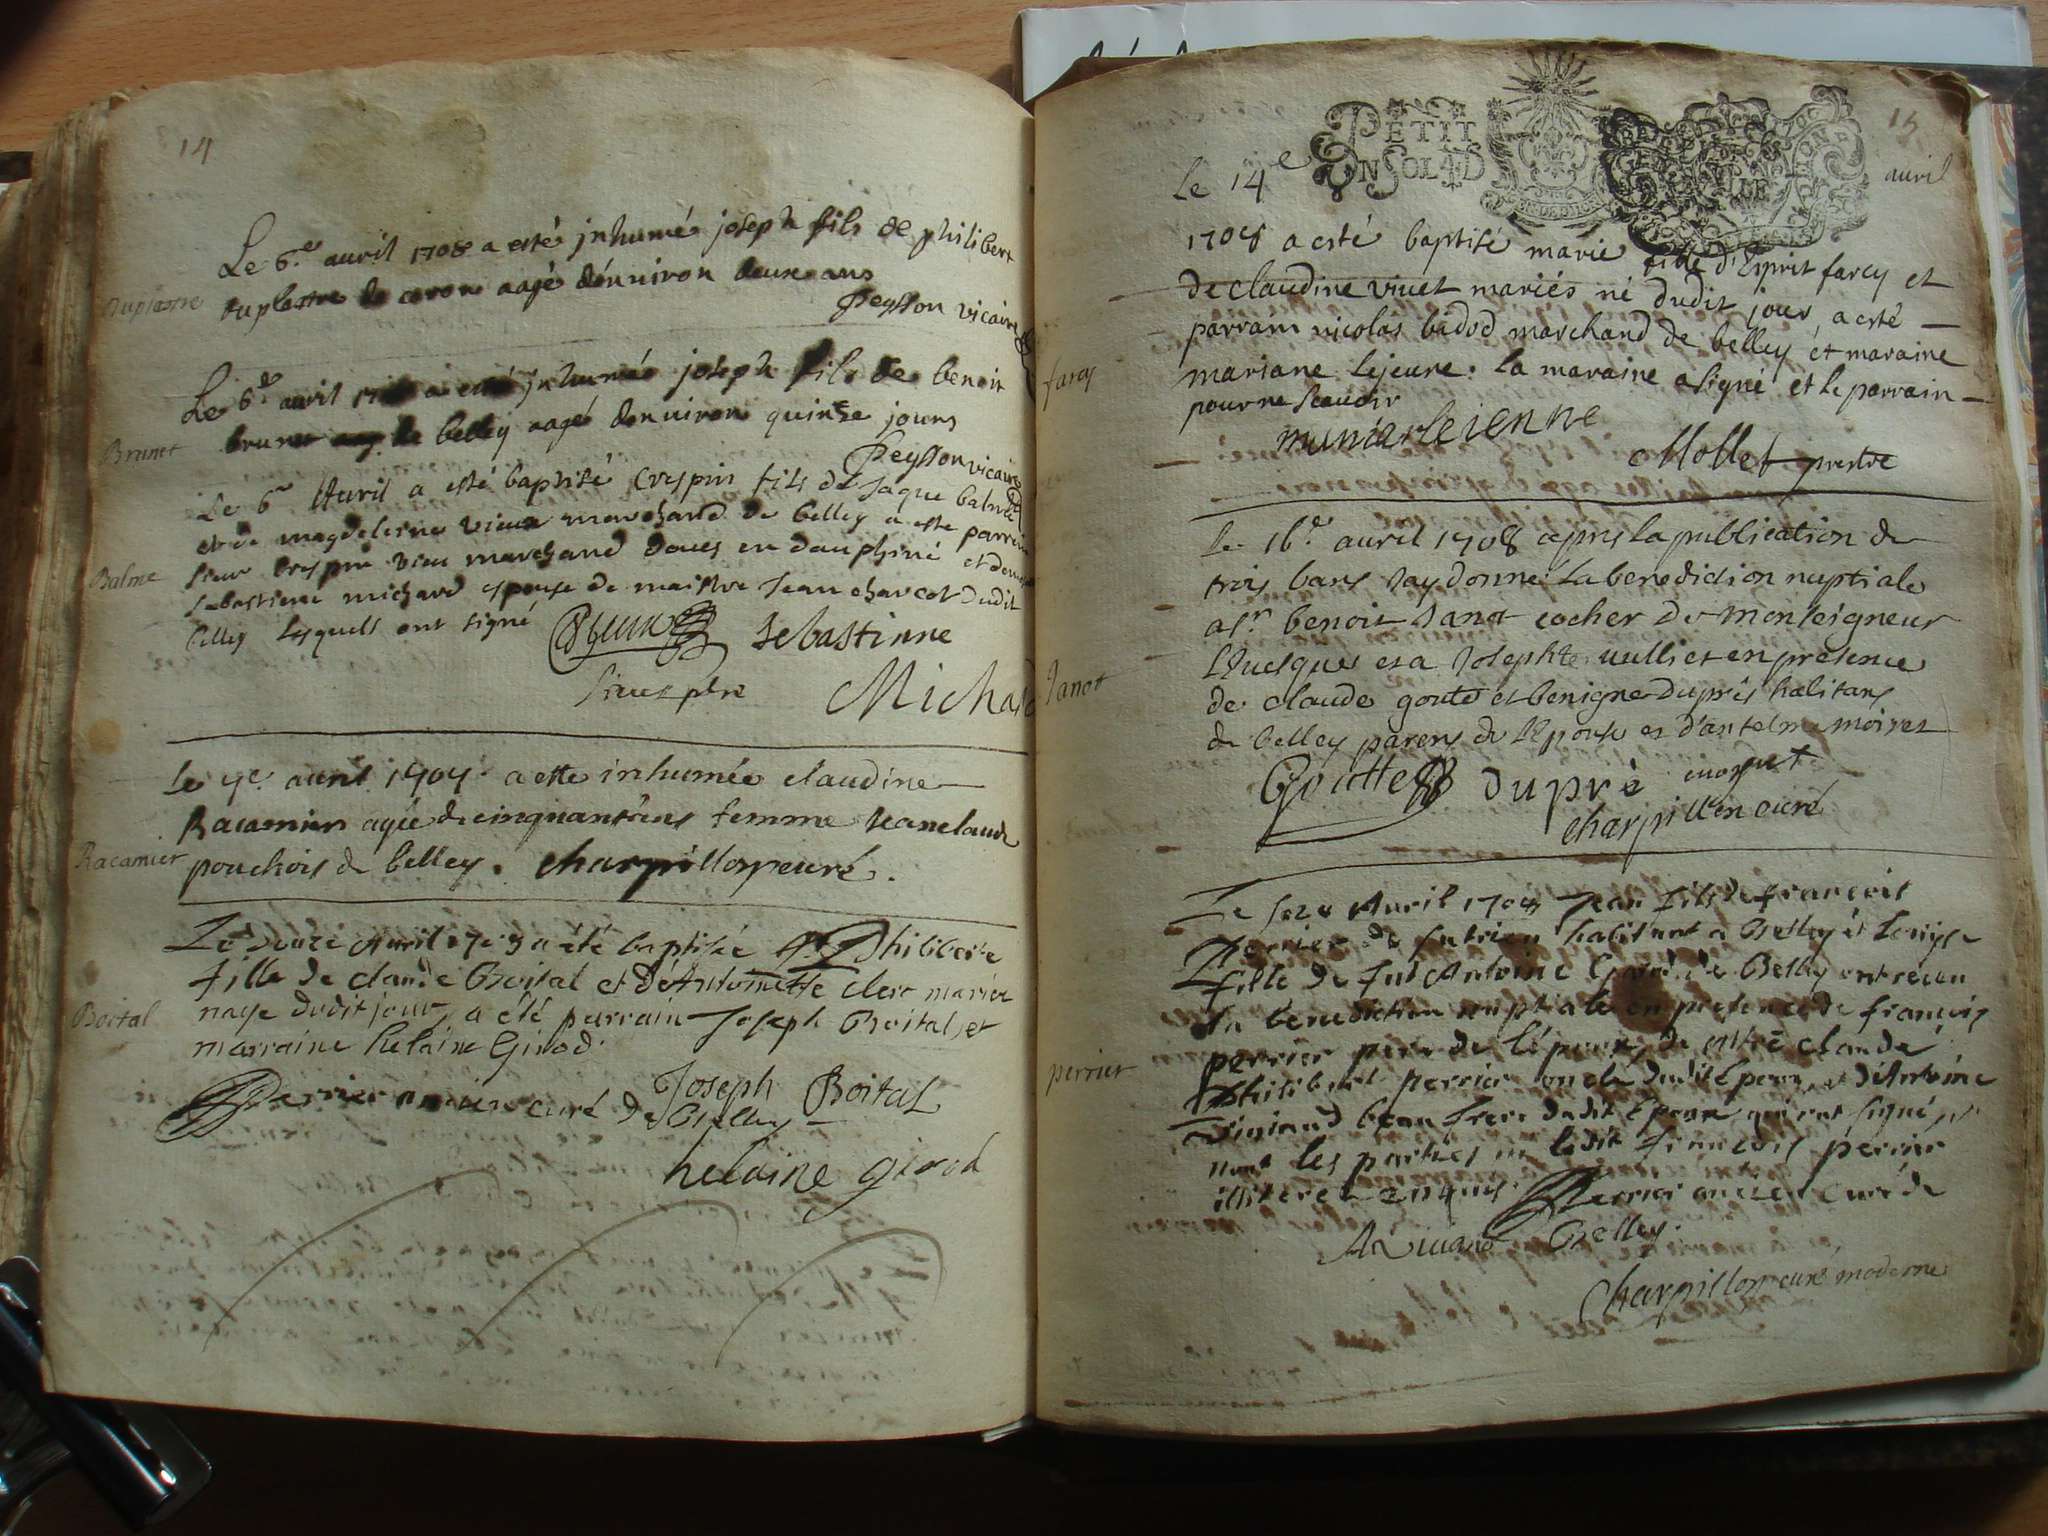 14
Le 6e. auril 1708 a esté jnhumé joseph fils de philibert
Duplastre
duplastre de ceron aagé d'enuiron deux ans
Peysson vicaire
Le 6e auril a esté jnhumé joseph fils de benoit
Brunet
brunet de belley aagé denuiron quinze jours
Peysson vicaire
Le 6e Auril a esté baptisé Crespin fils de Jaque balme
et de magdeleine vieux marchand de belley a este parrein
Balme
sieur crespin vieu marchand doues en dauphiné et
sebastiene michard espouse de maistre Jean charcot dudit
belley lesquels ont signé
Sebastinne
Michard
Le 9e. auril 1708. a este inhumée claudine
Racamier agée de cinquante ans femme Jeanclaude
Racamier
pouchois de belley. Charpillon curé.
Le douze Auril 1708 a été baptisée Philiberte
fille de claude Boital et d'Antoinette clerc mariés
Boital
naye dudit jour, a été parrain Joseph Boital, et
marraine helaine Girod.
Joseph Boital
Perrier ancien curé de Belley
helaine girod
15
PETIT
ON SOL 4 D
Le 14e auril
1708 a esté baptisé marie fille d'Esprit farcy et
de claudine viuet mariés né dudit jour, a esté
parrain nicolas badod marchand de belley et maraine
farcy
mariane lejeune. la maraine a signé et le parrain
pour ne scauoir
Mollet prestre
Le 16e. auril 1708 apres la publication de
trois bans Jay donné la benediction nuptiale
a sr. benoit Janot cocher de Monseigneur
LEuesque et a Josephte uulliet en presence
Janot
de claude goutte et benigne dupré habitans
de belley parens de lEpouse et d'antelme moiret
Goutte dupré moyret
charpillon curé
Le seze Auril 1708 Jean fils de françois
Perrier de habitant a Belley et Louyse
fille de feu Antoine de Belley ont receu
la benediction nuptiale en presence de francois
perrier
perrier pere de l'époux, de mtre claude
Philibert perrier oncle dudit époux, et d'Antoine
beau frere dudit Epoux qui ont signé,
non les parties ni ledit françois perrier
illiteré enquis. Perrier ancien curé de
Belley.
Charpillon curé moderne